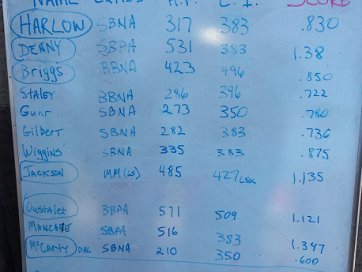 NAME CLASS A.P. C.I. SCORE
HARLOW SBNA 317 383 .830
DENNY SBPA 531 383 1.38
Briggs BBNA 423 496 .850
Staley BBNA 286 396 .722
Gunr SBNA 273 350 .780
Gilbert SBNA 282 383 .736
Wiggins SBNA 335 383 .875
JACKSON MM (LS) 485 427 1.135
Oustalet BBPA 571 509 1.121
MANCASE SBPA 516 383 1.347
McCarty SBNA 210 350 .600